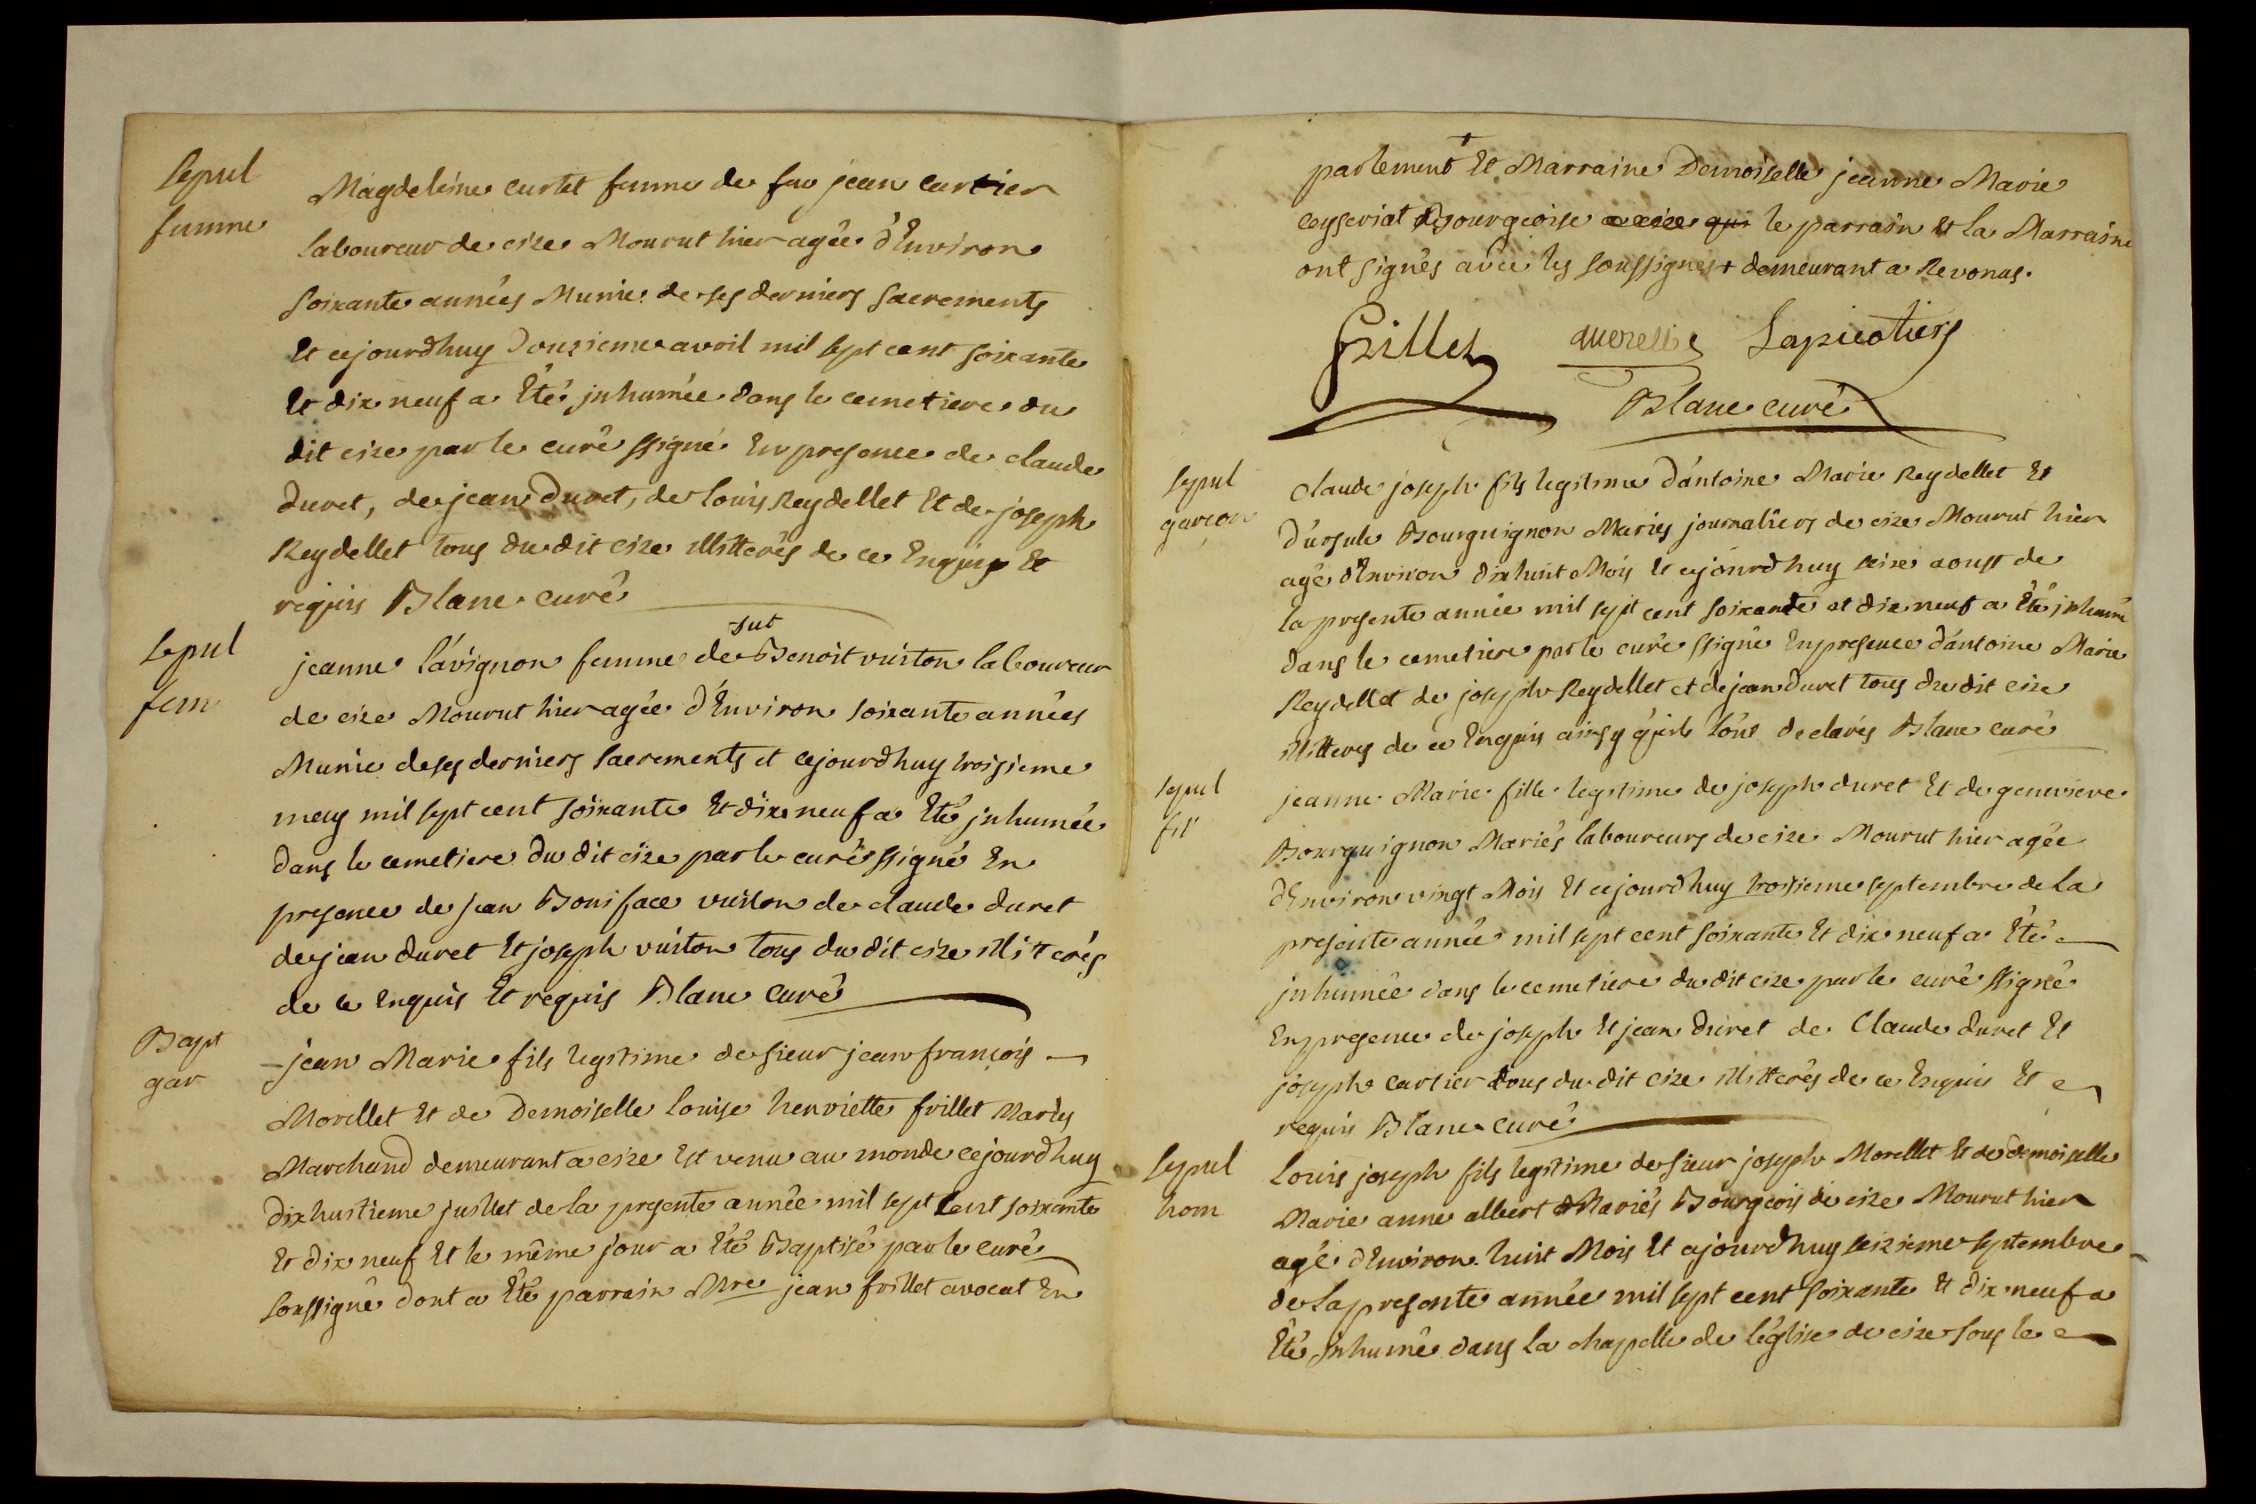 Sepul
femme
Magdeleine curtet femme de feu jean cartier
laboureur de cize Mourut hier agée d'Environ
soixante années Munie de ses derniers sacrements
Et cejourdhuy Douzieme avril mil sept cent soixante
Et dix neuf a Eté jnhumée dans le cemetiere du
dit cize par le curé ssigné En presence de claude
duret, de jean Duret, de louis Reydellet Et de joseph
Reydellet tous du dit cize illitterés de ce Enquis Et
requis Blanc curé
Sepul
fem
jeanne lávignon femme de Benoit vuiton laboureur
de cize Mourut hier agée d'Environ soixante années
Munie de ses derniers sacrements et cejourdhuy troisieme
may mil sept cent soixante Et dix neuf a Eté jnhumée
dans le cemetiere du dit cize par le curé ssigné En
presence de jean Boniface vuiton de claude duret
de jean duret Et joseph vuiton tous du dit cize illitterés
de ce Enquis Et requis Blanc curé
Bapt
gar
jean Marie fils legitime de sieur jean françois
Morellet Et de Demoiselle louise henriette frillet Mariés
Marchand demeurant a cize Est venu au monde cejourdhuy
dixhuitieme juillet de la presente année mil sept Cent soixante
Et dix neuf Et le même jour a Eté Baptisé par le curé
soussigné dont a Eté parrain Mre jean frillet avocat En
parlement + Et Marraine Demoiselle jeanne Marie
ceyseriat Bourgeoise le parrain Et la Marraine
ont signés avec les soussignés + demeurant a Revonas.
Frillet Morellet Lapicotiere
Blanc curé
Sepul
garcon
Claude joseph fils legitime d'antoine Marie Reydellet Et
d'ursule Bourguignon Mariés journaliers de cize Mourut hier
agé d'Environ dixhuit Mois Et cejourdhuy seize aoust de
la presente année mil sept cent soixante et dix neuf a Eté jnhumé
dans le cemetiere par le curé ssigné En presence d'antoine Marie
Reydellet de joseph Reydellet et de jean duret tous du dit cize
illitterés de ce Enquis ainsy qu'ils l'ont declarés Blanc curé
Sepul
fil
jeanne Marie fille legitime de joseph duret Et de genevieve
Bourguignon Mariés laboureurs de cize Mourut hier agée
d'Environ vingt Mois Et cejourdhuy troisieme septembre de la
presente année mil sept cent soixante Et dix neuf a Eté
jnhumée dans le cemetiere du dit cize par le curé ssigné
En presence de joseph Et jean duret de Claude duret Et
joseph cartier tous du dit cize illitterés de ce Enquis Et
requis Blanc curé
Sepul
hom
Louis joseph fils legitime de sieur joseph Morellet Et de demoiselle
Marie anne albert Mariés Bourgeois de cize Mourut hier
agé d'Environ huit Mois Et cejourdhuy seizieme septembre
de la presente année mil sept cent soixante Et dix neuf a
Eté jnhumé dans la chapelle de l'église de cize sous le